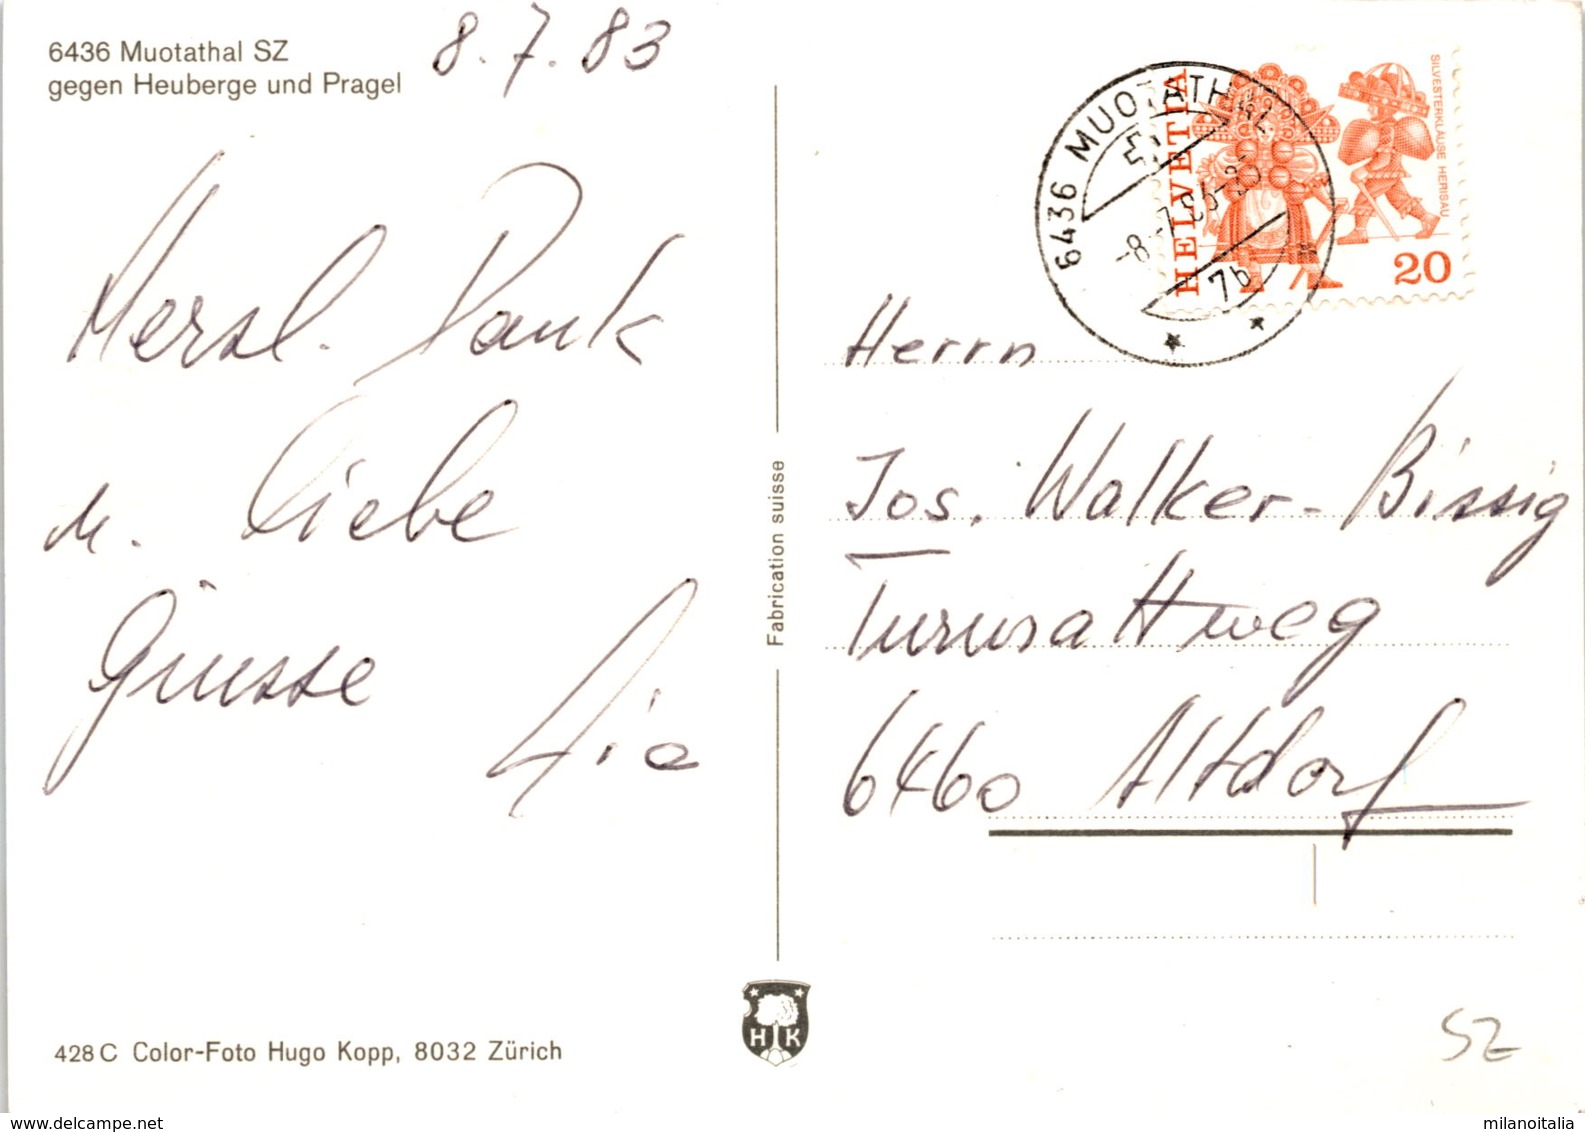 6436 Muotathal SZ
gegen Heuberge und Pragel
8.7.83
Herzl. Dank
u. liebe
Grüsse
HELVETIA
SILVESTERKLÄUSE HERISAU
20
6436 MUOTATHAL
-8.-7.83-
7b
Herrn
Jos. Walker-Bissig
Turmattweg
6460 Altdorf
Fabrication suisse
H K
428 C Color-Foto Hugo Kopp, 8032 Zürich
SZ
www.delcampe.net
milanoitalia